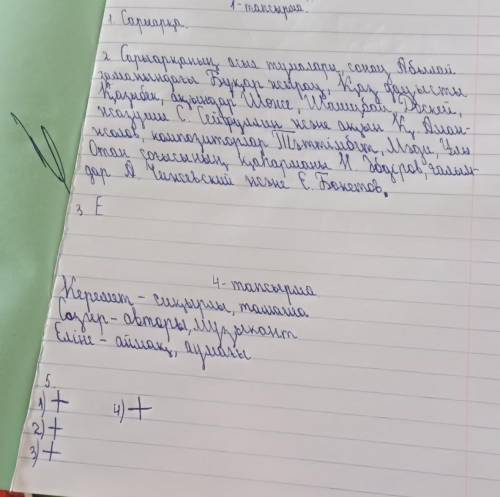 1-тапсырма.
1. Сарыарқа.
2. Сарыарқаның асыл тумалары, сонау Абылай
заманындағы Бұқар жырау, Қаз дауысты
Қазыбек, ақындар Шөже, Шашубай, Доскей,
жазушы С. Сейфуллин және ақын Қ. Аман-
жолов, композиторлар Тәттімбет, Мәди, Ұлы
Отан соғысының қаһарманы Н. Әбдіров, ғалым-
дар А Чижевский және Е. Бөкетов.
3. Е
4-тапсырма
Керемет - сиқырлы, тамаша
Сазгер - авторы, музыкант
Еліне - аймақ, аумағы
5.
1) + 4) +
2) +
3) +